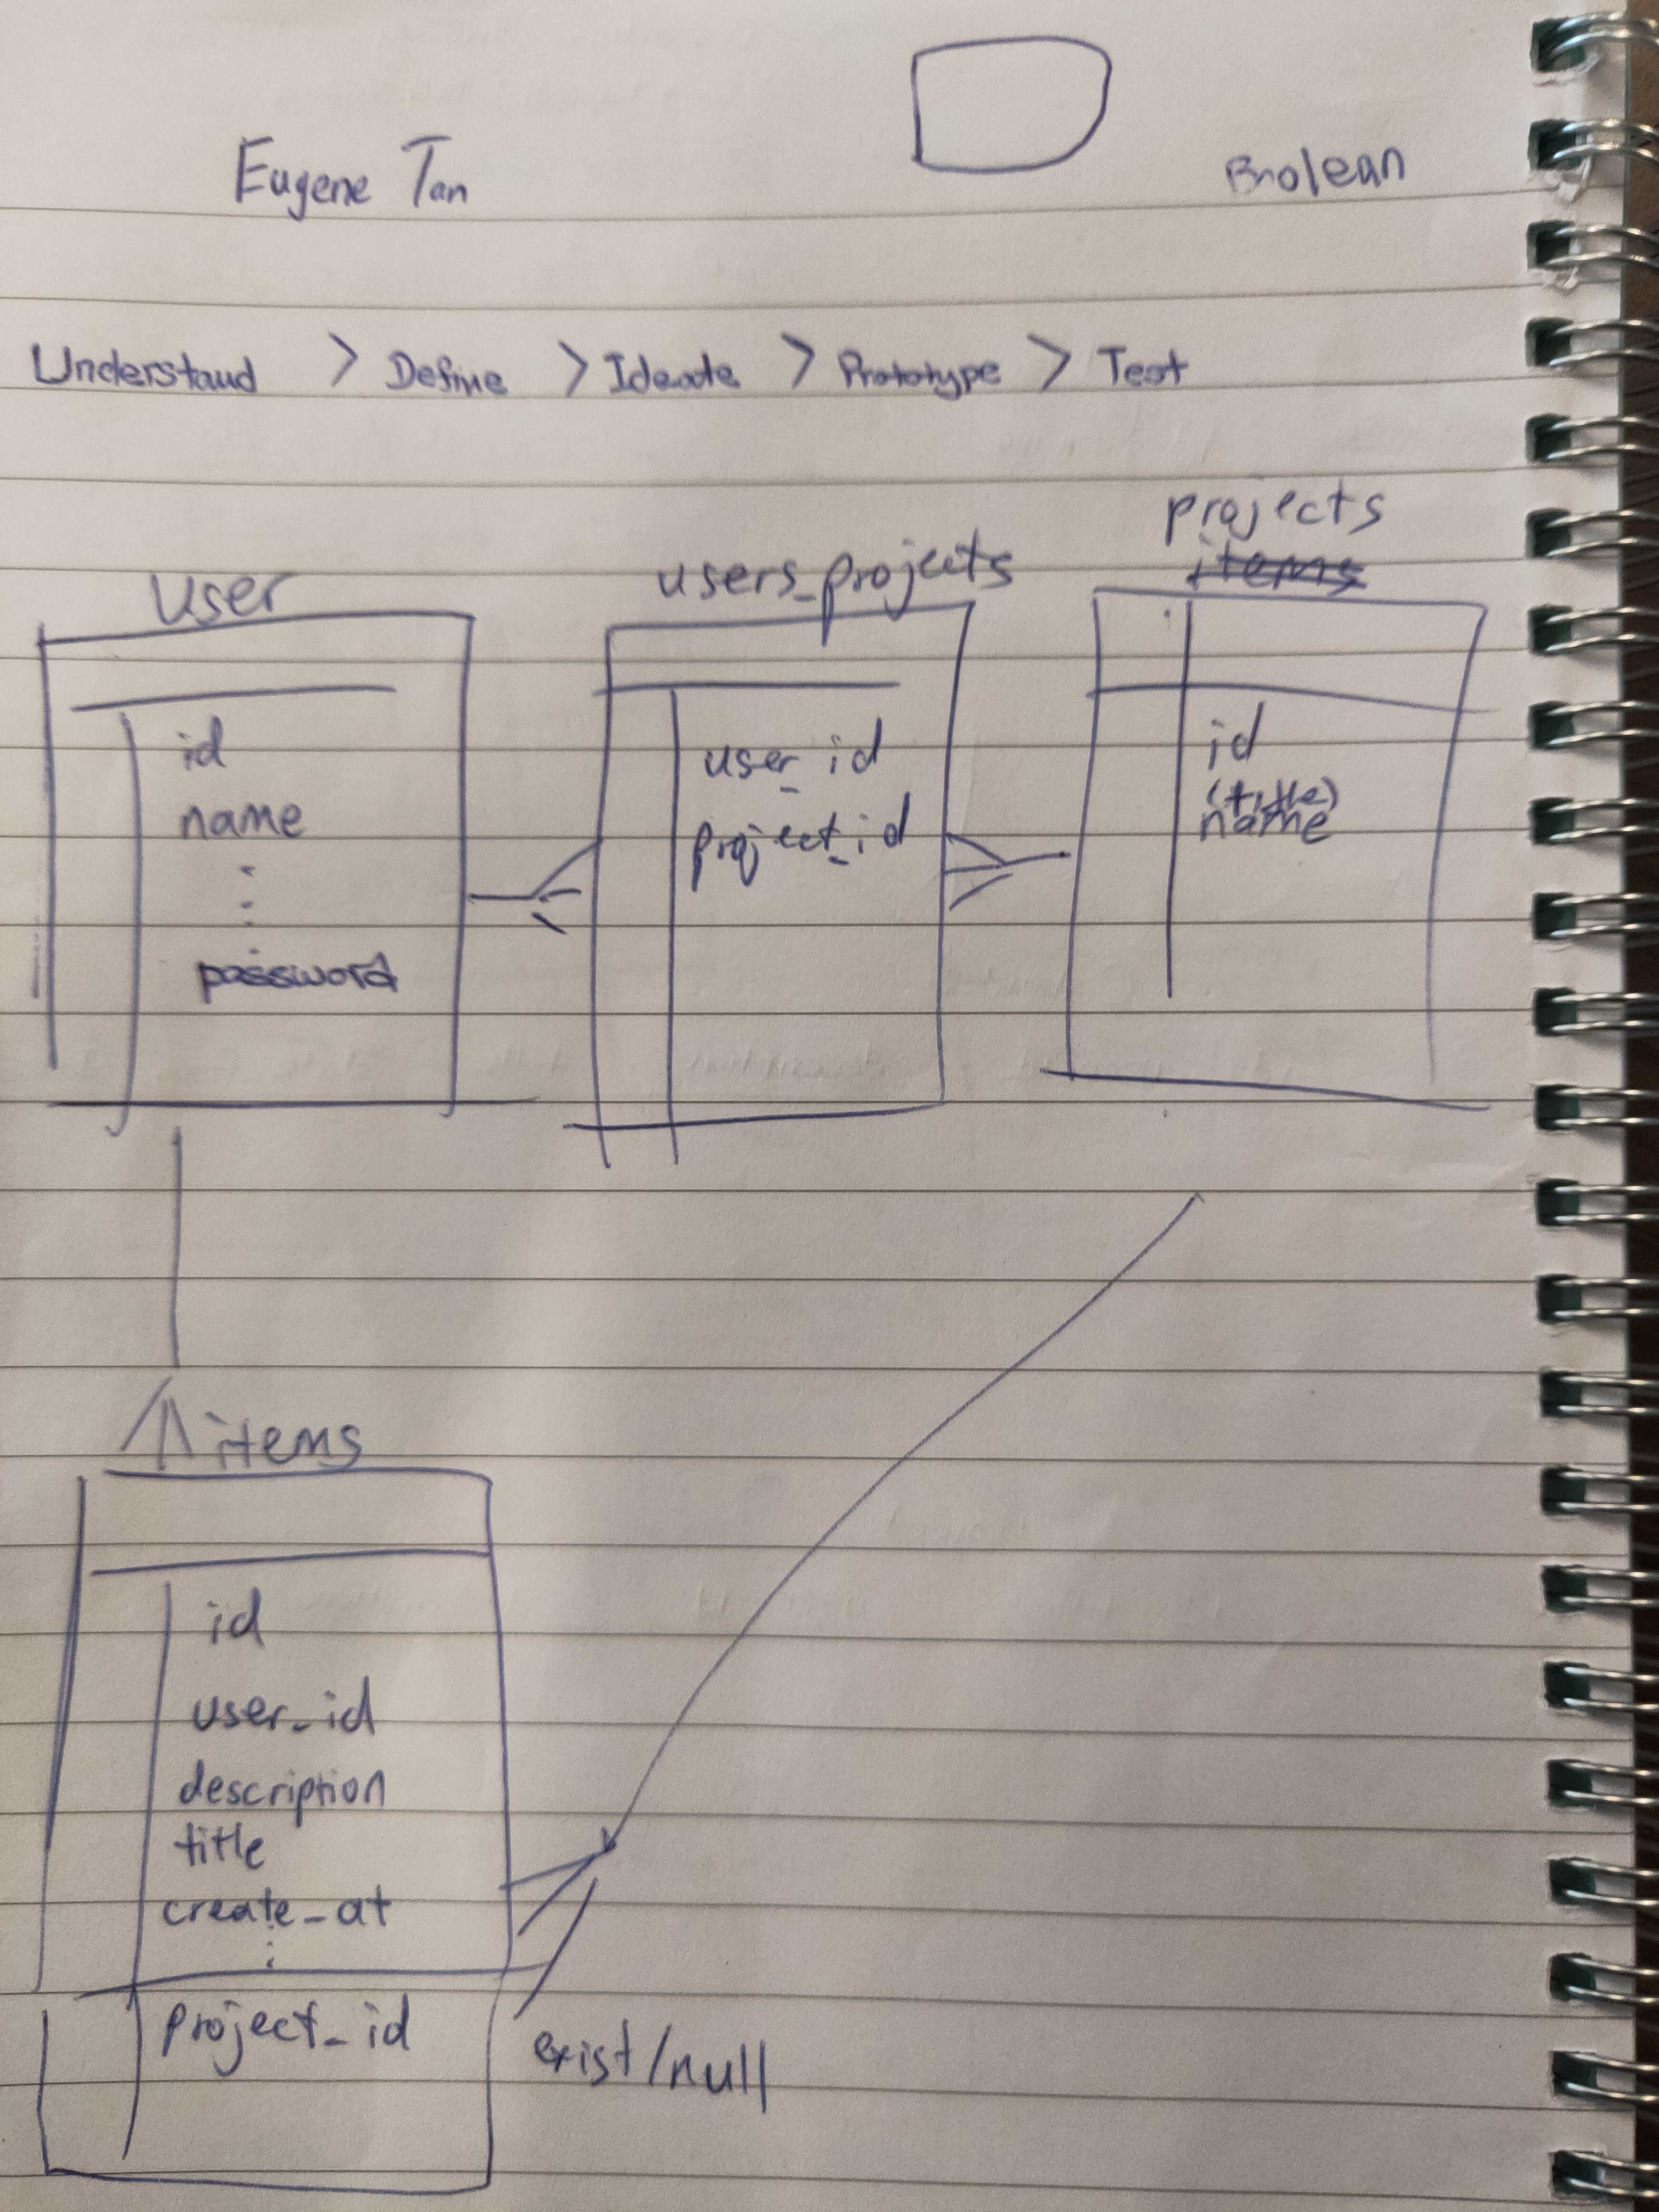 Eugene Tan
Boolean
Understand > Define > Ideate > Prototype > Test
user
id
name
password
users_projects
user_id
project_id
projects
items
id
(title)
name
items
id
user_id
description
title
create_at
project_id
exist/null